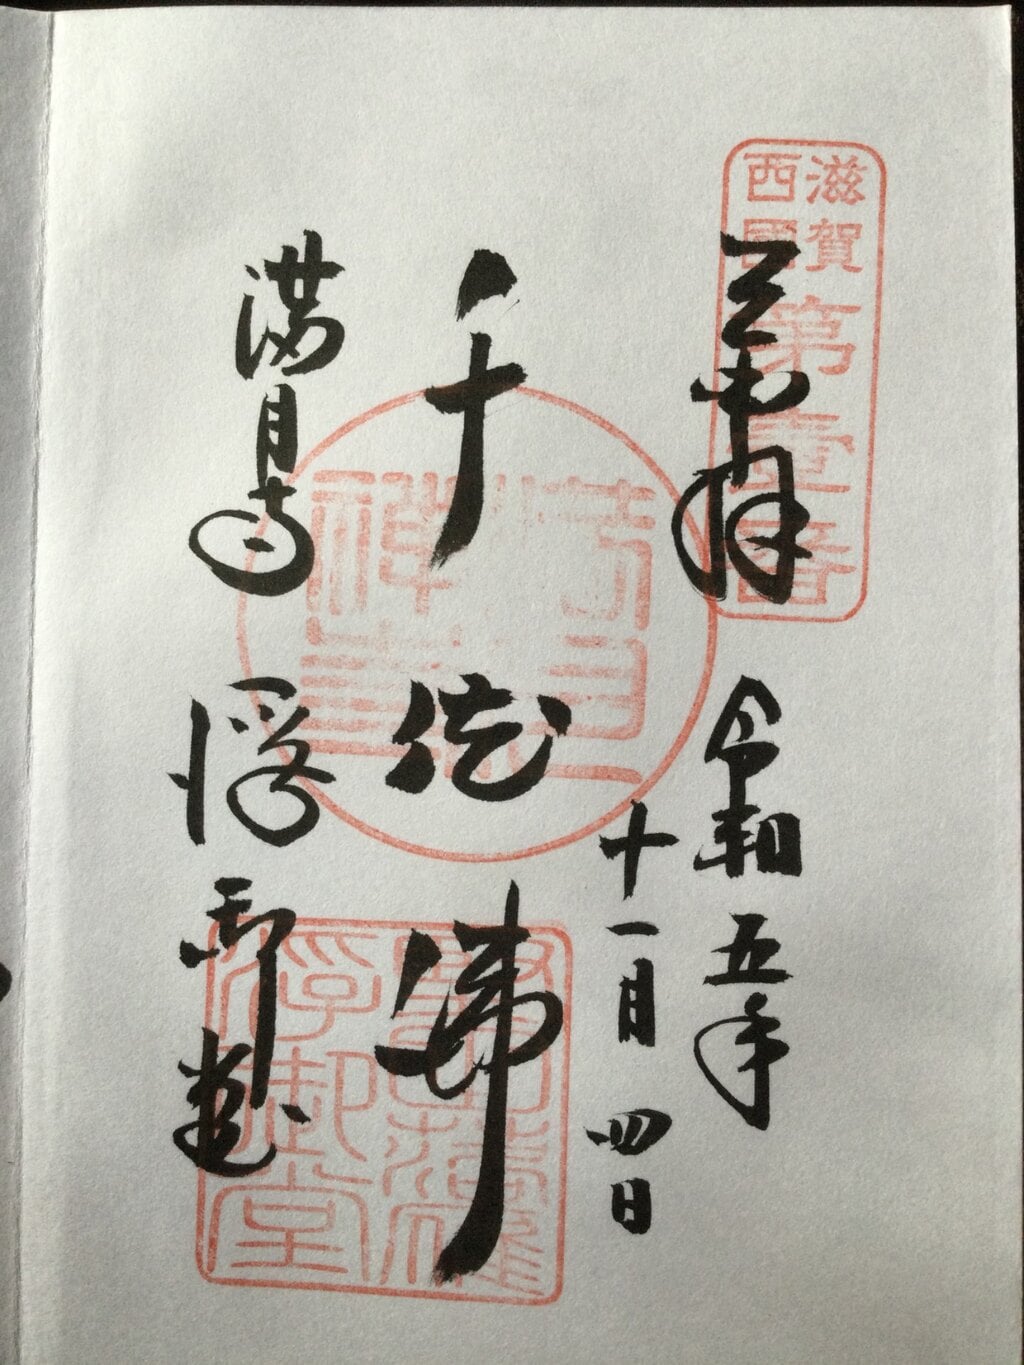 滋賀
西國
第壹番
奉拝
令和五年
十一月四日
千体佛
満月寺
浮御堂